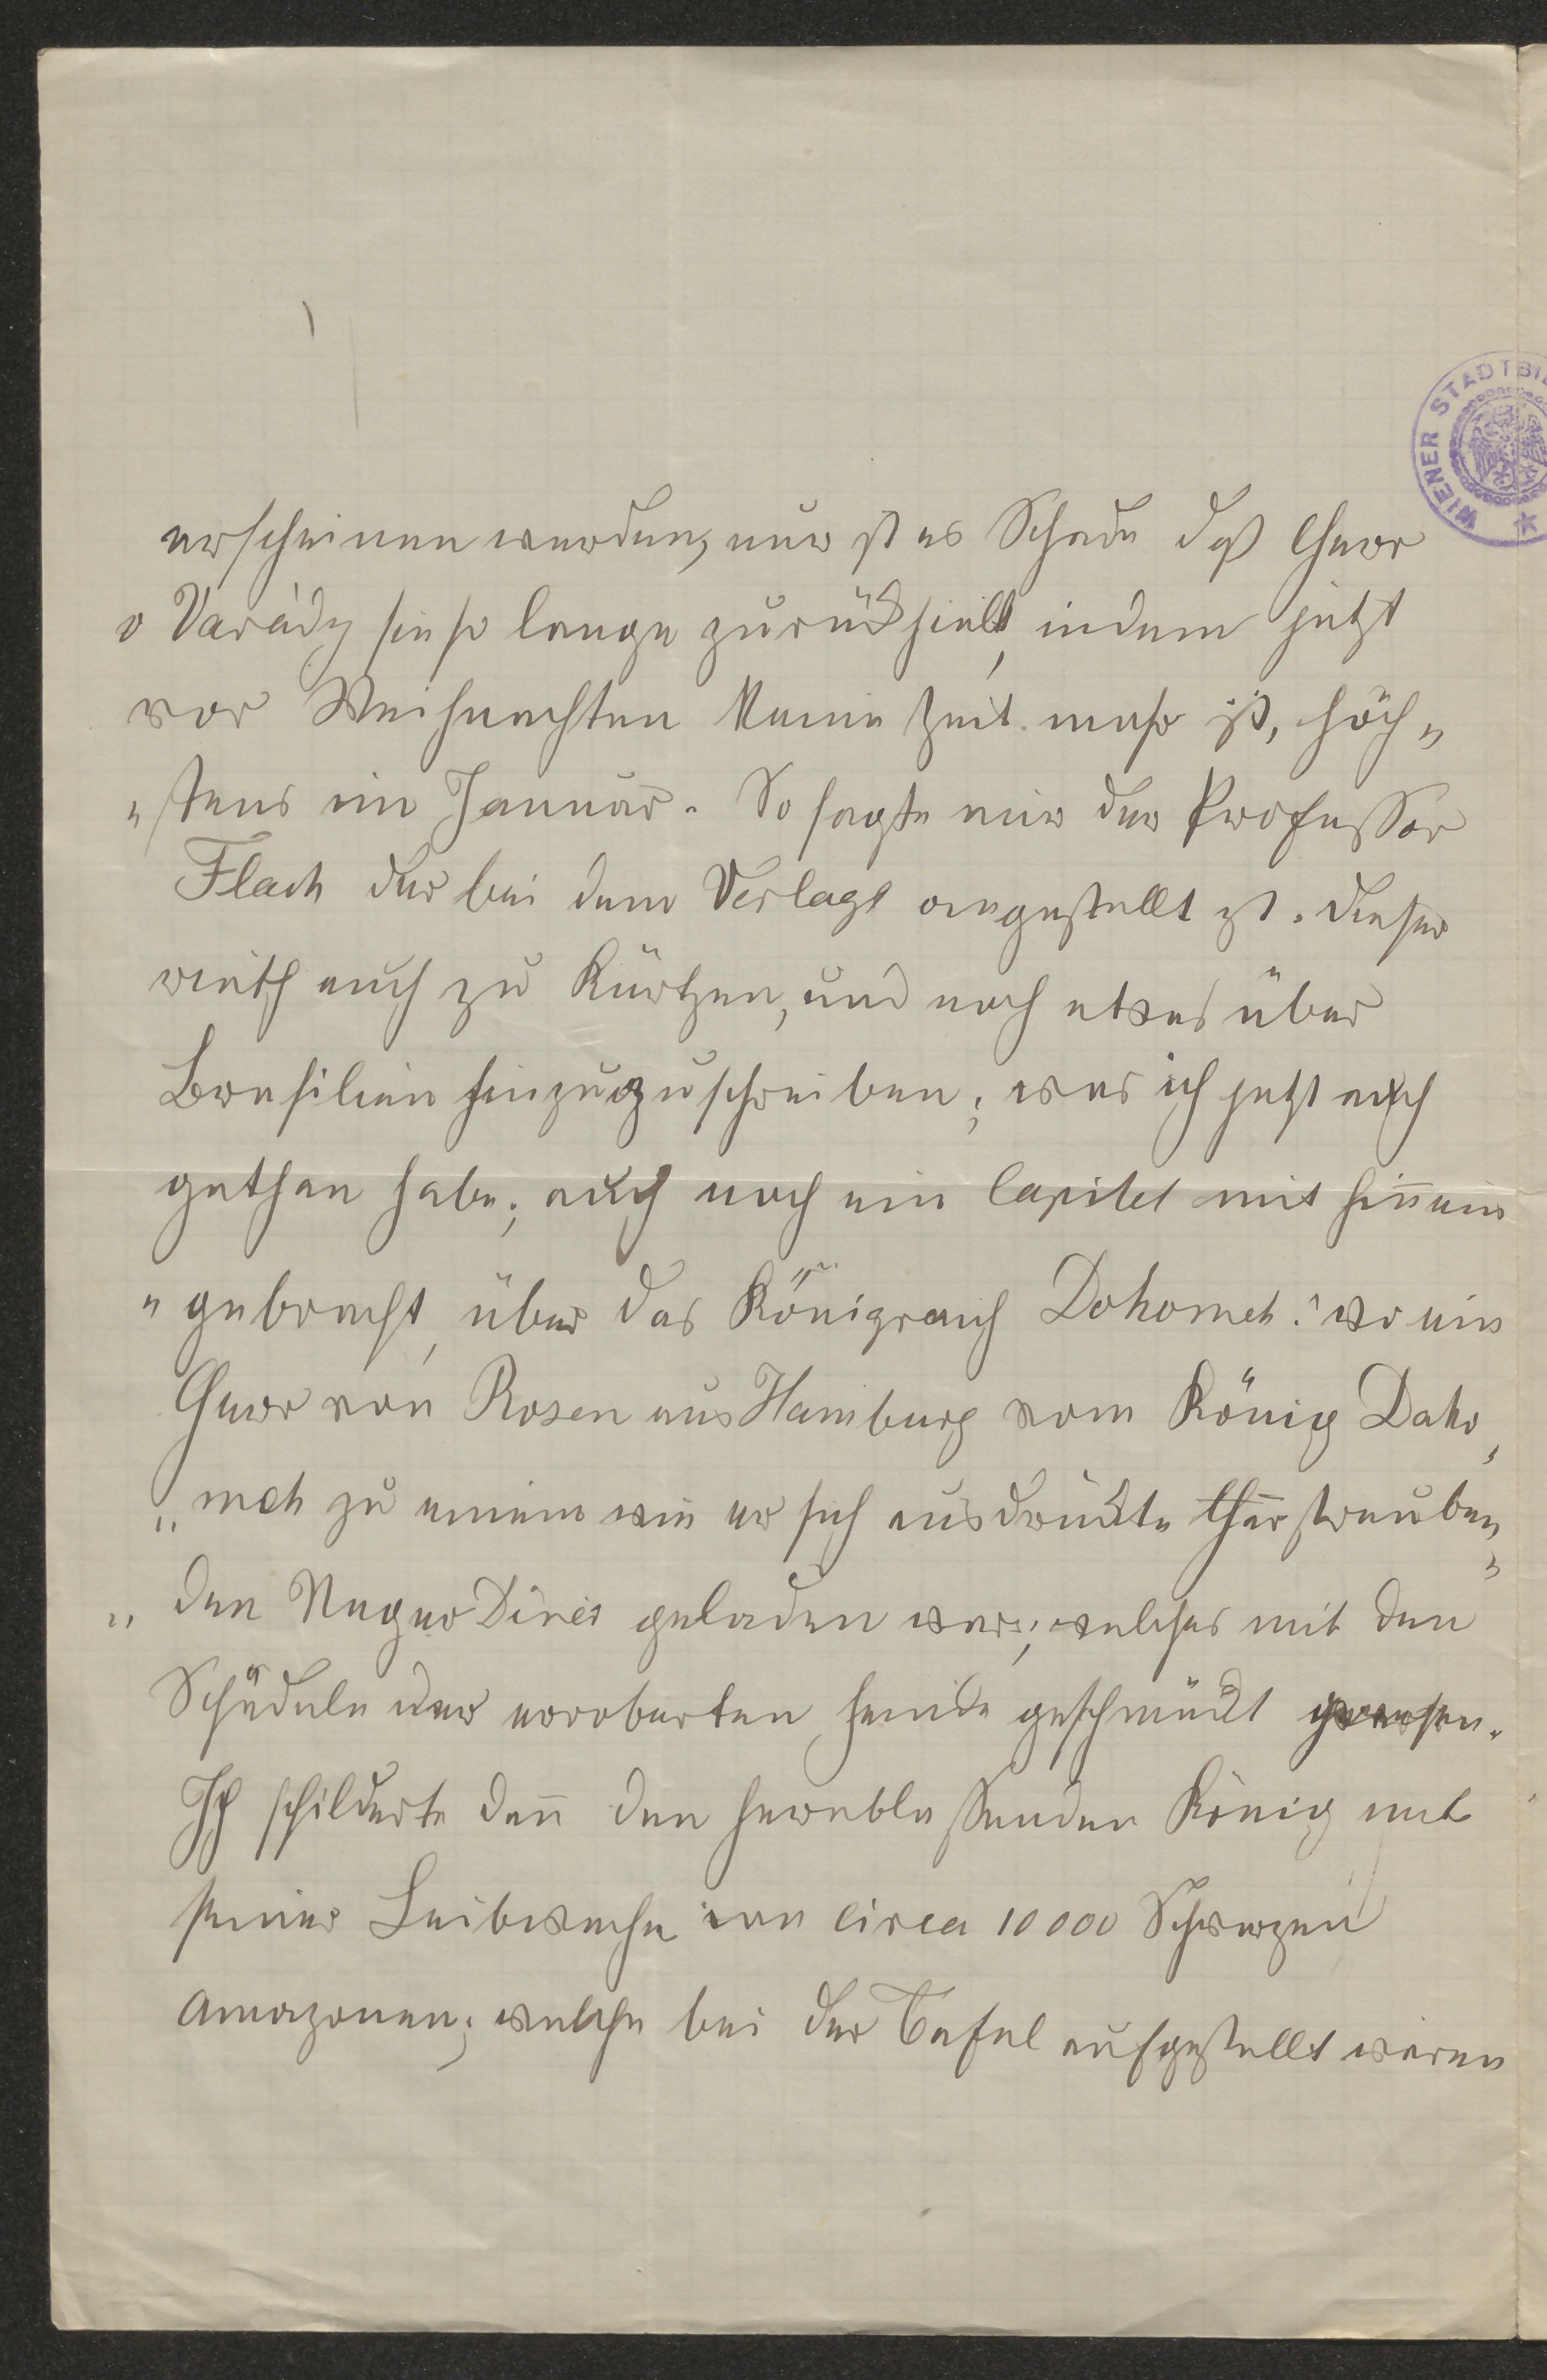 WIENER STADTBI
erscheinen werden, nur ist es Schade daß Herr
v Varády sie so lange zurückhielt, indem jetzt
vor Weihnachten keine Zeit mehr ist, höch„
„stens im Januar. So sagte mir der Professor
Flach der bei dem Verlage angestellt ist. Dieser
rieth auch zu kürtzen, und noch etwas über
Brasilien hinzuzuschreiben; was ich jetzt auch
gethan habe; auch noch ein Capitel mit hinnein
„gebracht, über das Königreich Dohomeh: wo ein
Herr von Rosen aus Hamburg vom König Daho„
„meh zu einem wie er sich ausdrückte Haarstreuben„
„den Neger Diner geladen war; welches mit den
Schädeln der eroberten Feinde geschmückt gewesen.
Ich schilderte dann den herablassenden König mit
seiner Leibwache von circa 10000 Schwarzen
Amazonen; welche bei der Tafel aufgestellt waren